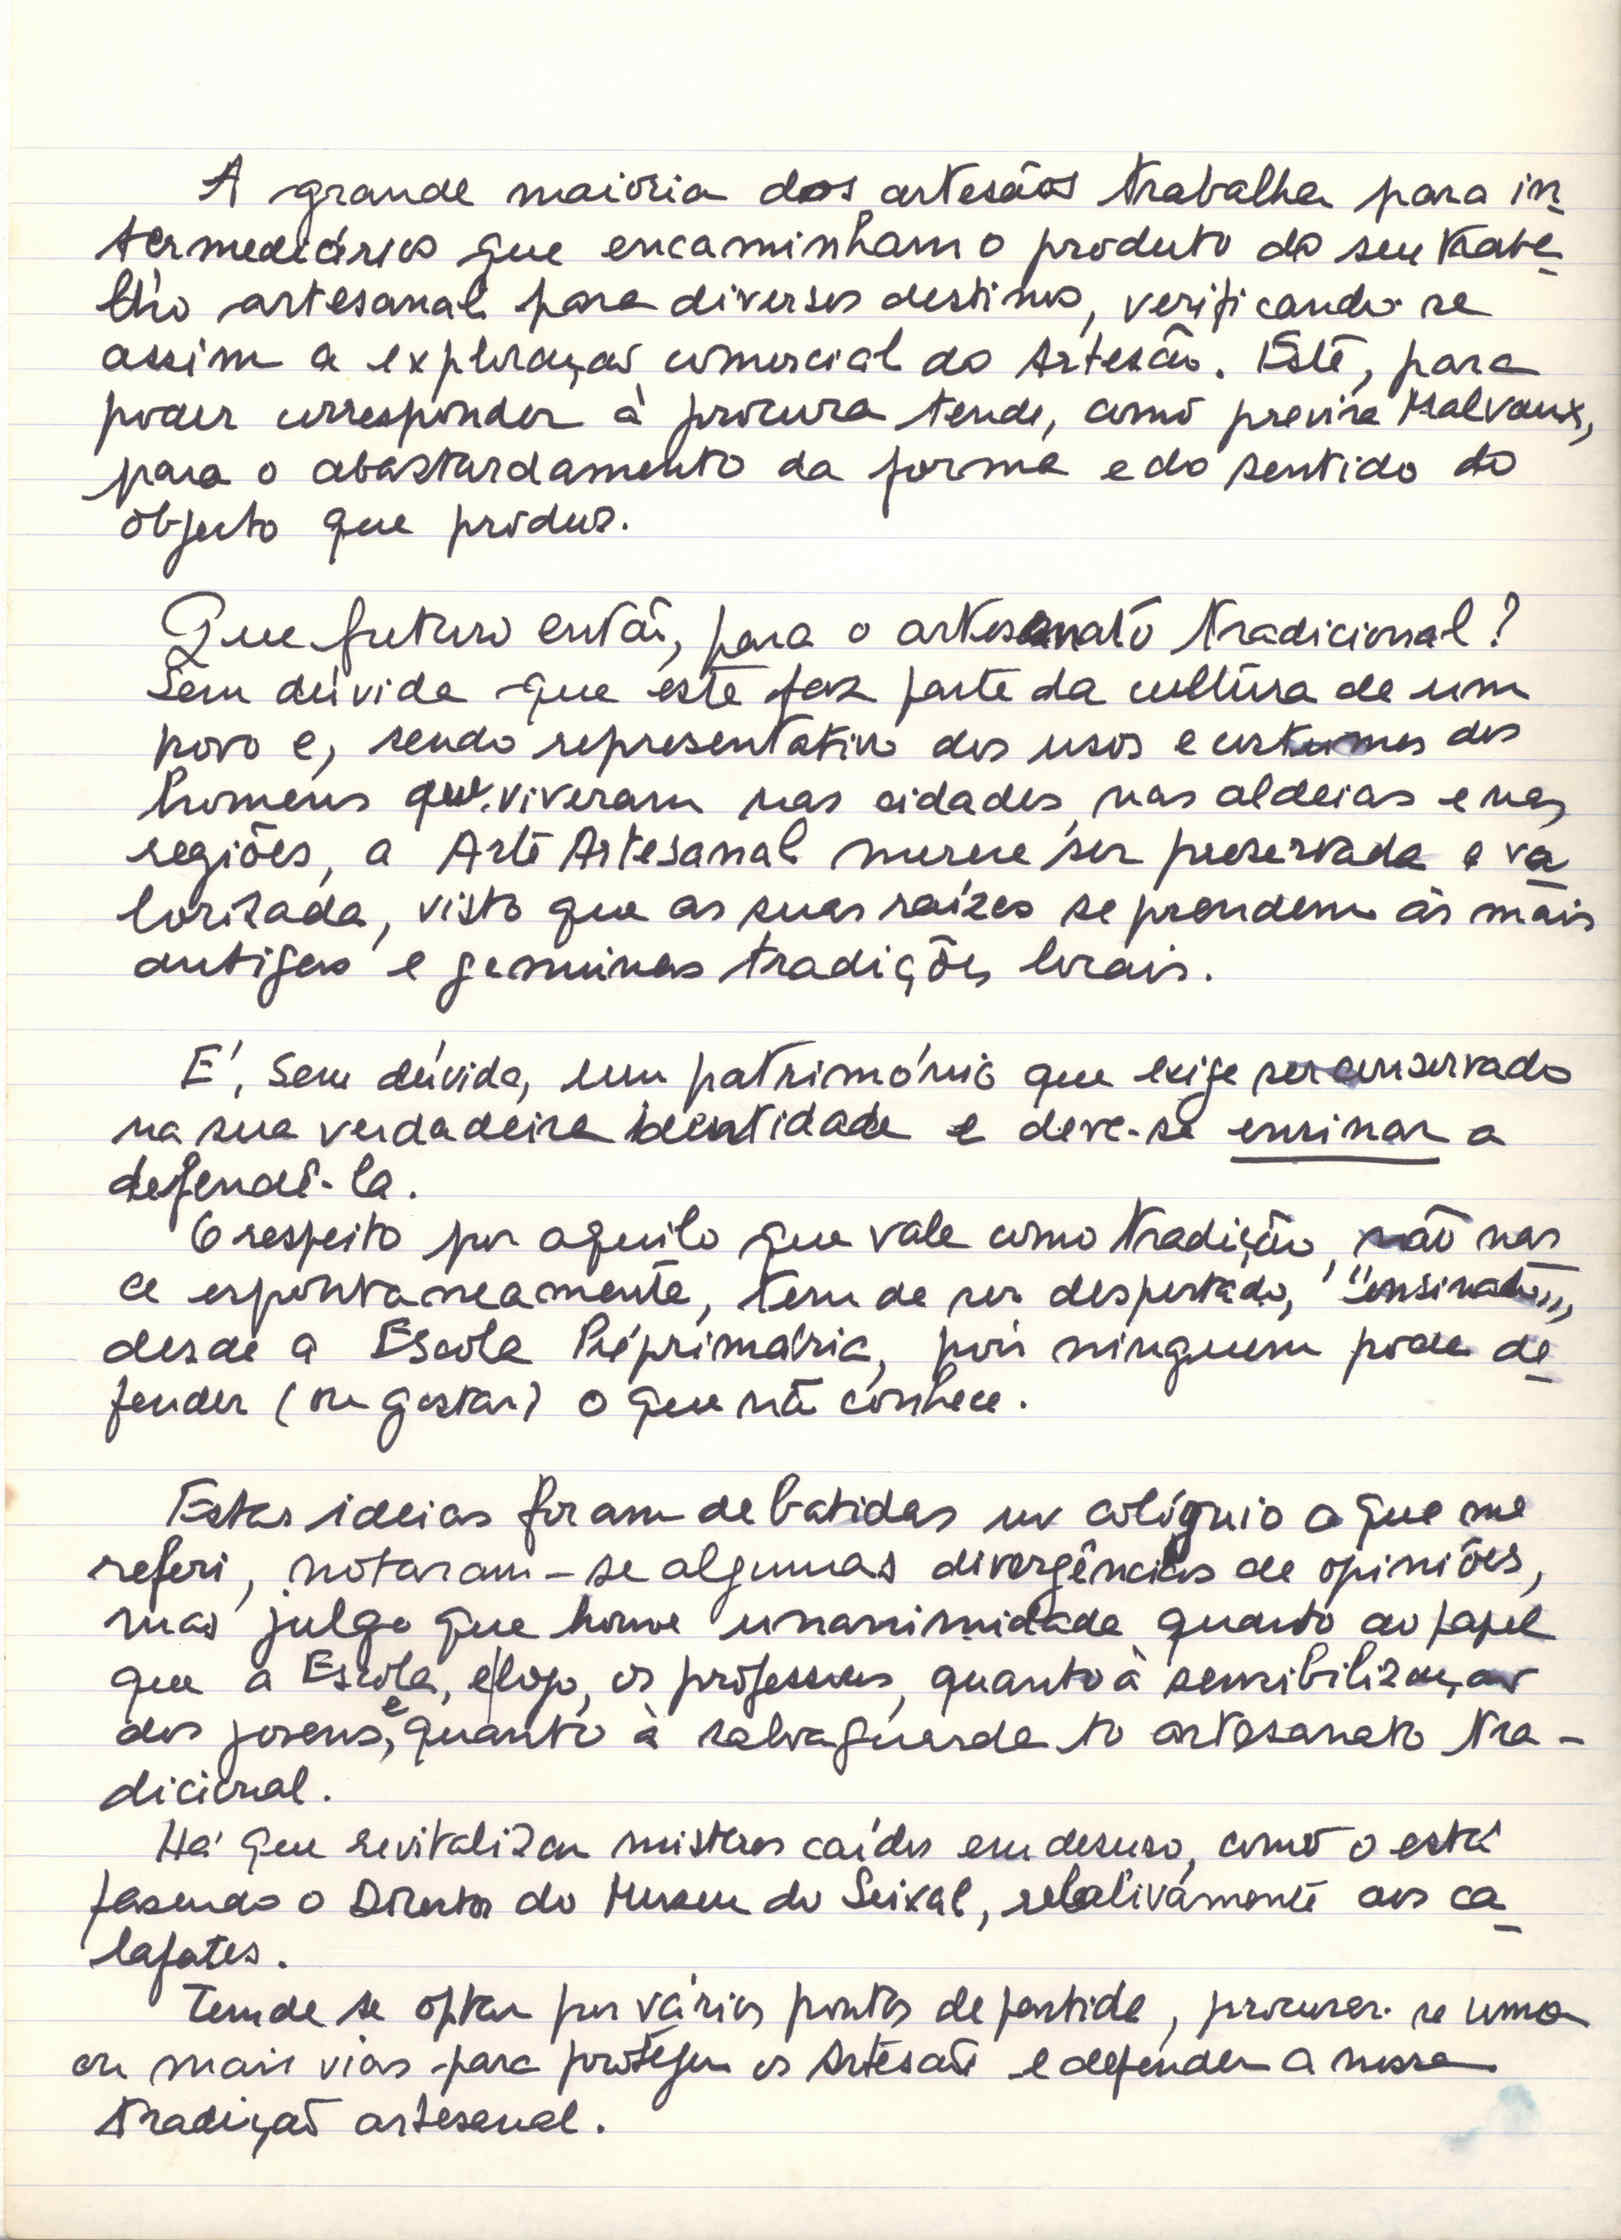 A grande maioria dos artesãos trabalha para in
termediários que encaminham o produto do seu traba
lho artesanal para diversos destinos, verificando-se
assim a exploração comercial do Artesão. Este, para
poder corresponder à procura tende, como previra Malvaux,
para o abastardamento da forma e do sentido do
objecto que produz.
Que futuro então, para o artesanato tradicional?
Sem dúvida que este faz parte da cultura de um
povo e, sendo representativo dos usos e costumes dos
homens que viveram nas cidades, nas aldeias e nas
regiões, a Arte Artesanal merece ser preservada e va
lorizada, visto que as suas raízes se prendem às mais
antigas e genuinas tradições locais.
E', sem dúvida, um património que exige ser conservado
na sua verdadeira identidade e deve-se ensinar a
defendê-la.
O respeito por aquilo que vale como tradição, não nas
ce espontaneamente, tem de ser despertado, "ensinado",
desde a Escola Préprimária, pois ninguem pode de
fender (ou gostar) o que não conhece.
Estas ideias foram debatidas no colóquio a que me
referi, notaram-se algumas divergências de opiniões,
mas julgo que houve unanimidade quanto ao papel
que a Escola, e logo, os professores, quanto à sensibilização
dos jovens, e quanto à salvaguarda do artesanato tra-
dicional.
Há que revitalizar misteres caídos em desuso, como o está
fazendo o Director do Museu do Seixal, relativamente aos ca
lafates.
Tem de se optar por vários pontos de partida, procurar-se uma
ou mais vias para proteger os Artesãos e defender a nossa
tradição artesanal.